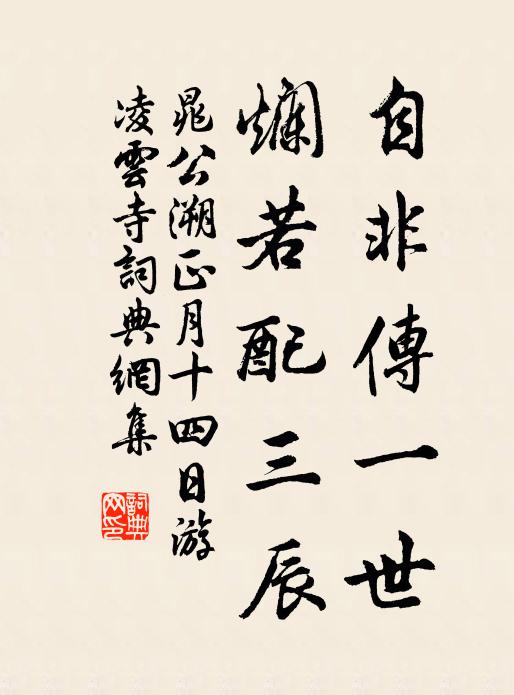 自非傳一世
爛若配三辰
晁公溯正月十四日游
凌雲寺詞典網集
詞典網印